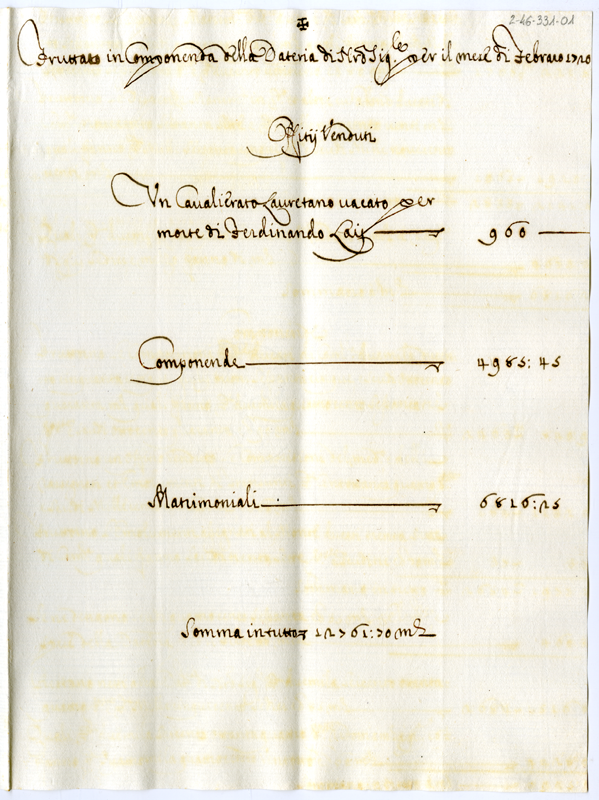 2-46-331-01
✠
Fruttato in Componenda della Dateria di Nrõ Sig.re per il mese di Febraro 1710
Offitij Venduti
Un Cavalierato Lauretano vacato per
morte di Ferdinando Laij 960
Componende 4985:45
Matrimoniali 6816:25
Somma in tutto 12761:70 mta